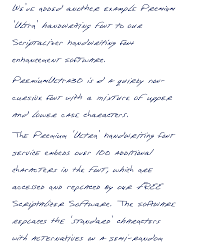 We've added another example Premium
'Ultra' handwriting font to our
Scriptalizer handwriting font
enhancement software.
PremiumUltra30 is a quirky non-
cursive font with a mixture of upper
and lower case characters.
The Premium 'Ultra' handwriting font
service embeds over 100 additional
characters in the font, which are
accessed and replaced by our FREE
Scriptalizer Software. The software
replaces the 'standard' characters
with alternatives on a semi-random